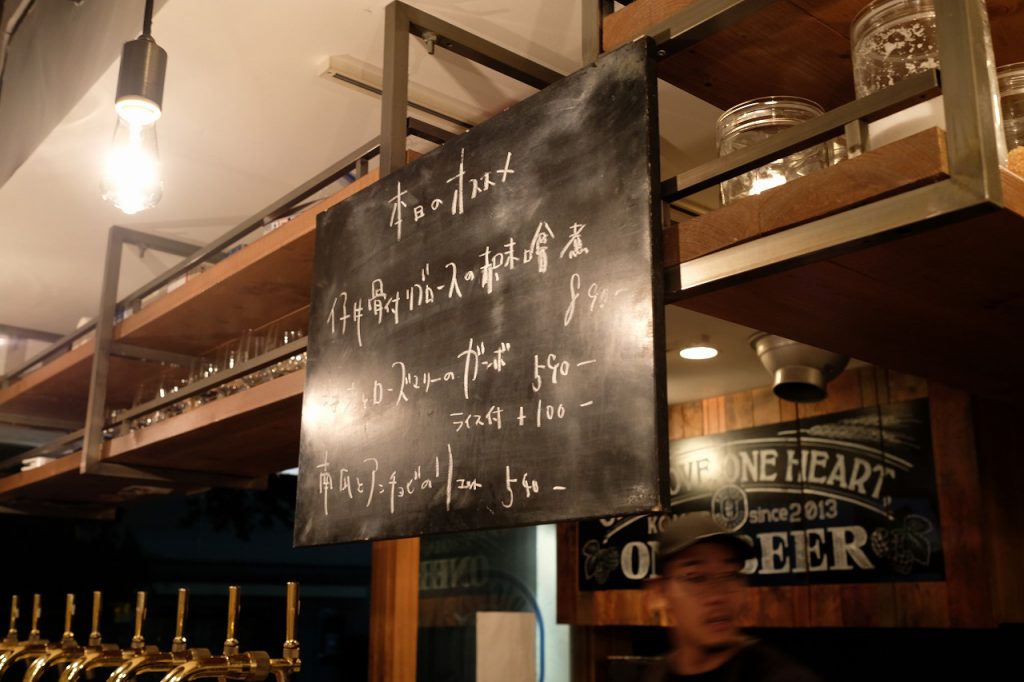 本日のオススメ
仔牛骨付リブロースの赤味噌煮
890-
とローズマリーのガンボ 590-
ライス付 +100-
南瓜とアンチョビの 590-
ONE HEART
since 2013
BEER